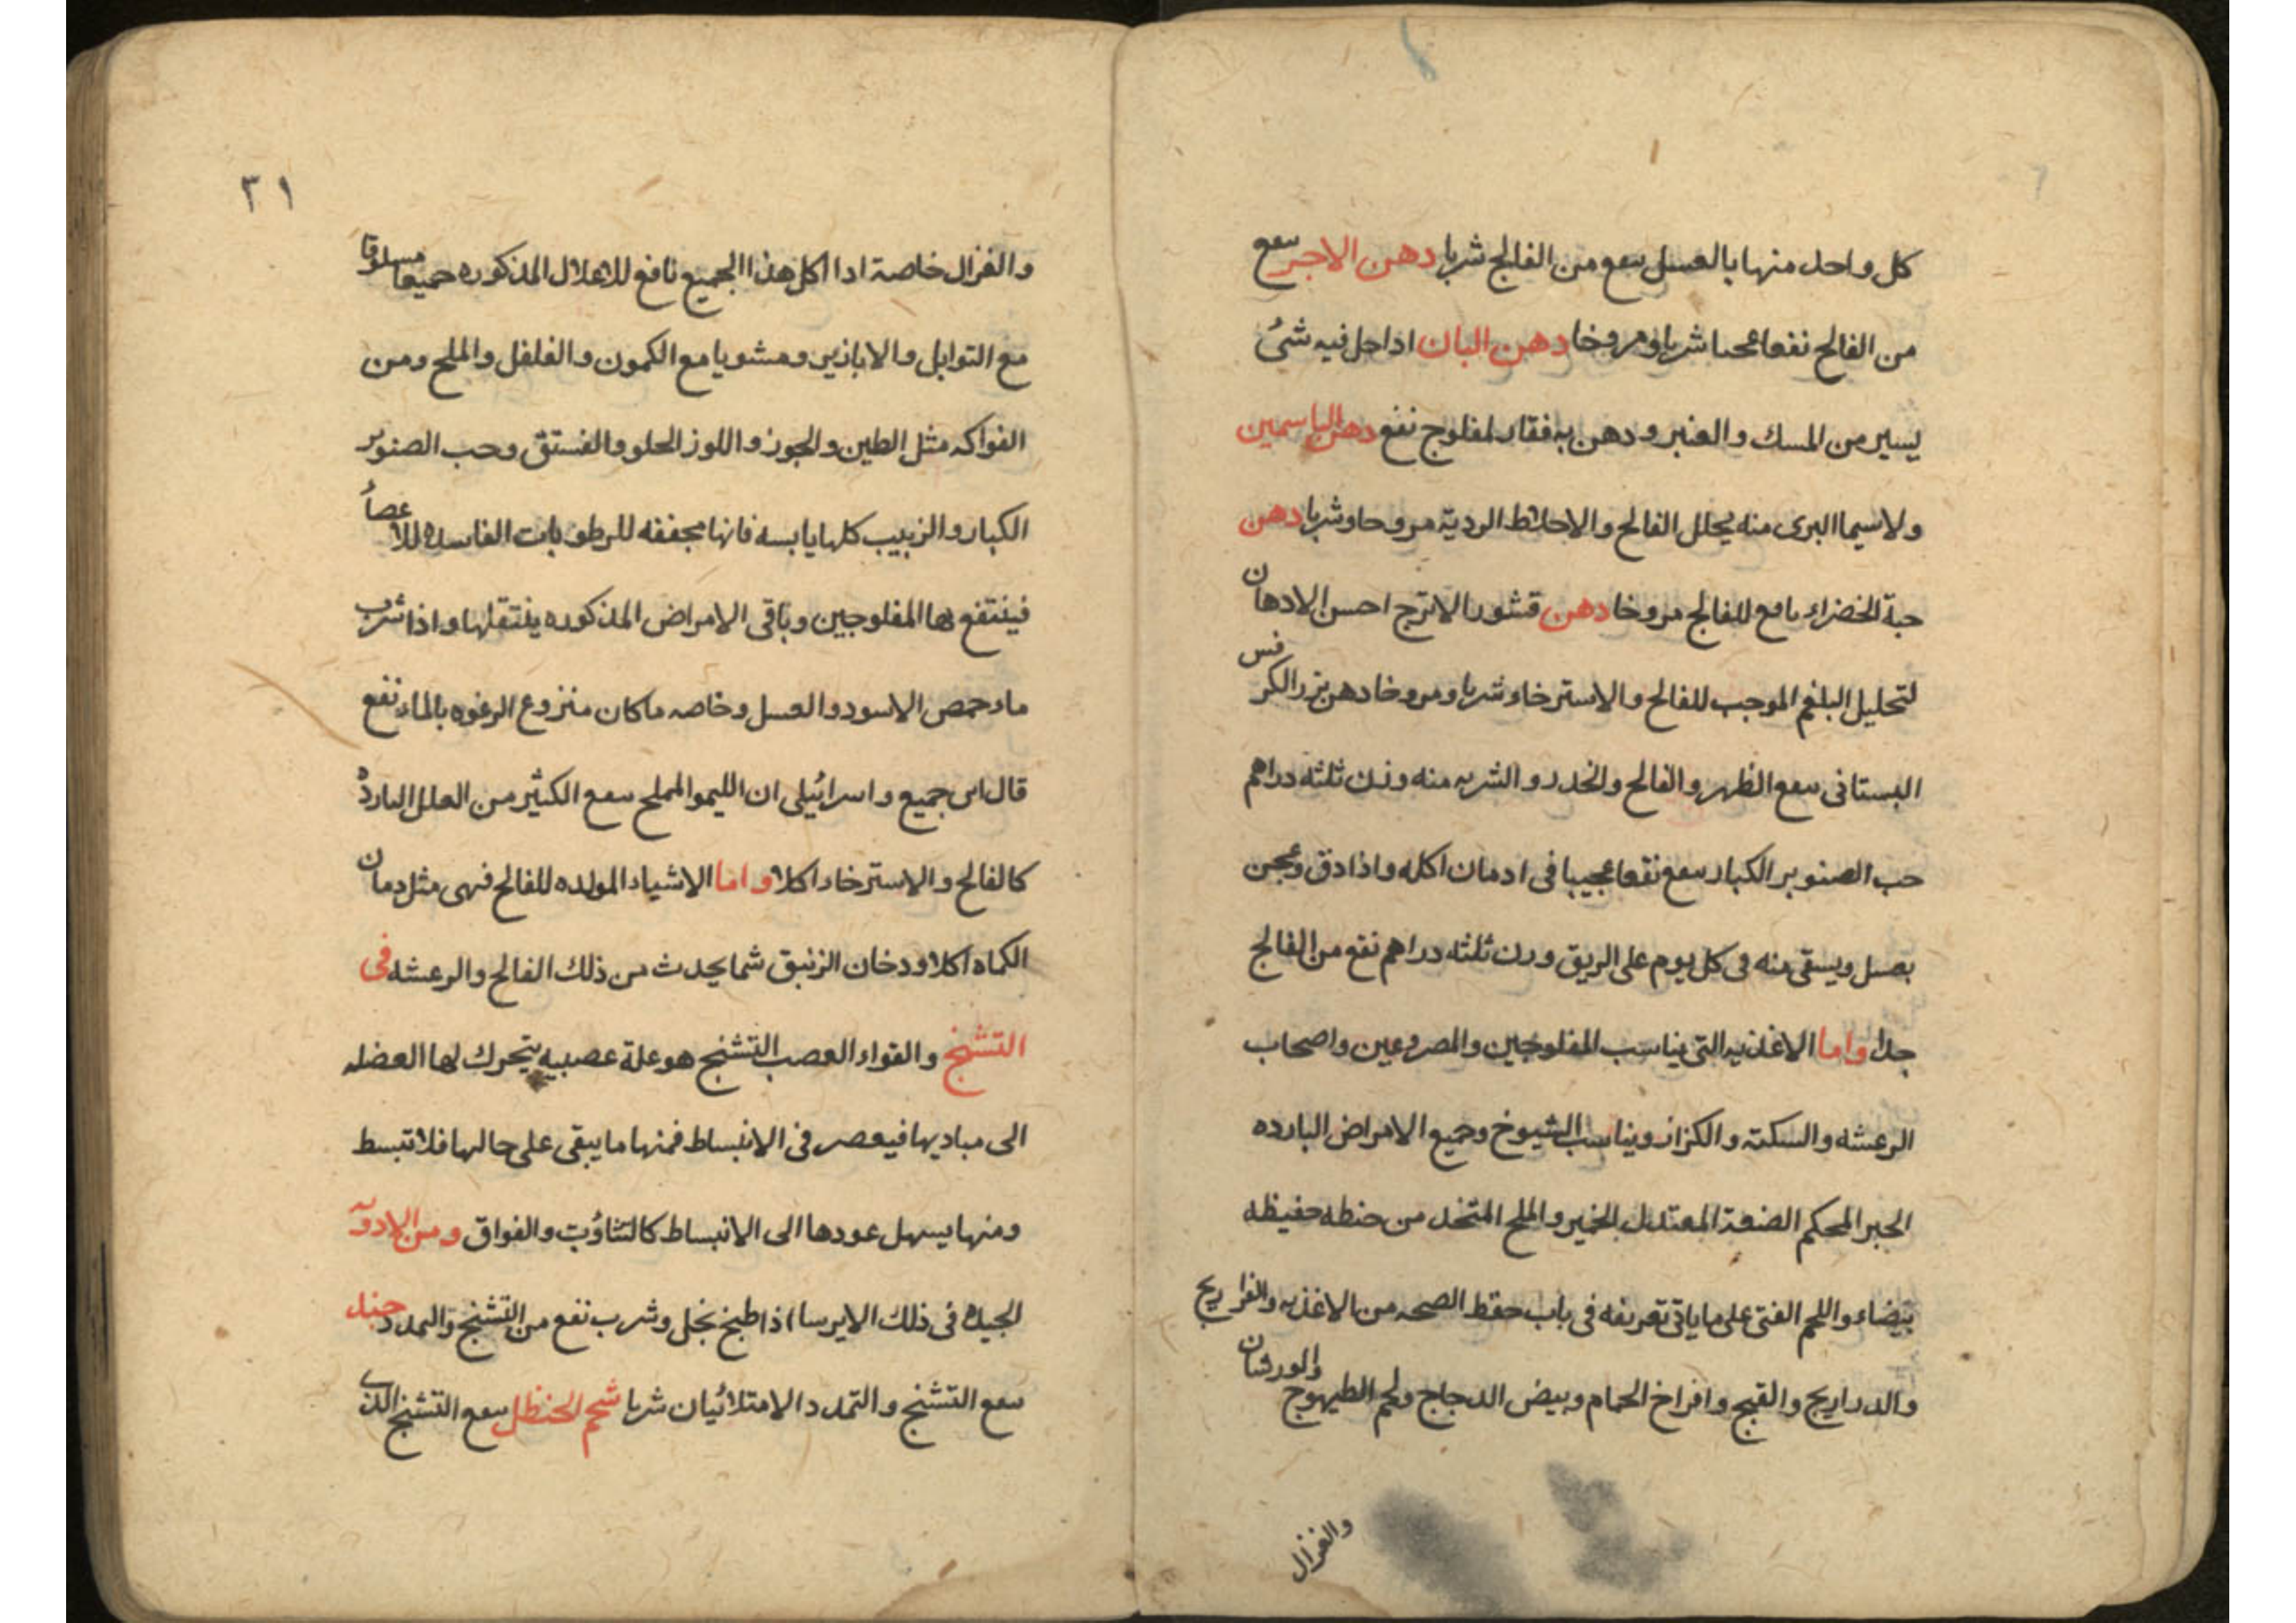 كل واحد منها بالعسل ينفع من الفالج شربا دهن الاجر ينفع
من الفالج نفعا عجيبا شربا ومروخا دهن البان اذا حل فيه شئ
يسير من المسك والعنبر ودهن به فقار لمفلوج نفع دهن الياسمين
ولاسيما البرى منه يحلل الفالج والاخلاط الردية مروخا وشربا دهن
حبة الخضراء نافع للفالج مروخا دهن قشور الاترج احسن الادهان
لتحليل البلغم الموجب للفالج والاسترخاء شربا ومروخا دهن بزر الكرفس
البستانى ينفع الظهر والفالج والخدر والشربه منه وزن ثلثه دراهم
حب الصنوبر الكبار ينفع نفعا عجيبا فى ادمان اكله واذا دق وعجن
بعسل ويسقى منه فى كل يوم على الريق وزن ثلثه دراهم نفع من الفالج
جدا واما الاغذيه التى يناسب المفلوجين والمصروعين واصحاب
الرعشه والسكته والكزاز ويناسب الشيوخ وجميع الامراض البارده
الخبز المحكم الصنعة المعتدل الخمير والملح المتخذ من حنطه حفيظه
بيضاء واللحم الفتى على ما ياتى تعريفه فى باب حفظ الصحه من الاغذيه والفراريج
والدراريج والقبج وافراخ الحمام وبيض الدجاج ولحم الطيهوج والورشان
والغزال
٢١
والغزال خاصة اذا اكل هذا الجميع نافع للاعلال المذكوره جميعا مسلوقا
مع التوابل والابازير ومشويا مع الكمون والفلفل والملح ومن
الفواكه مثل الطين والجوز واللوز الحلو والفستق وحب الصنوبر
الكبار والزبيب كلها يابسه فانها مجففه للرطوبات الفاسده للاعصاُ
فينتفع بها المفلوجين وباقى الامراض المذكوره ينتقلها واذا شرب
ماء حمص الاسود والعسل وخاصه ما كان منزوع الرغوه بالماء نفع
قال ابن جميع واسرائيلى ان الليمو المملح ينفع الكثير من العلل البارده
كالفالج والاسترخاء اكلا واما الاشياء المولده للفالج فهى مثل دمان
الكماه اكلا ودخان الزنبق شما يحدث من ذلك الفالج والرعشه فى
التشنج والقواء العصب التشنج هو علة عصبيه يتحرك لها العضله
الى مباديها فيعصر فى الانبساط فمنها ما يبقى على حالها فلا تبسط
ومنها يسهل عودها الى الانبساط كالتثاؤب والفواق ومن الادويه
الجيده فى ذلك الايرسا اذا طبخ بخل وشرب نفع من التشنج والتمدد جند
ينفع التشنج والتمدد الامتلائيان شربا شحم الحنظل ينفع التشنج الذى